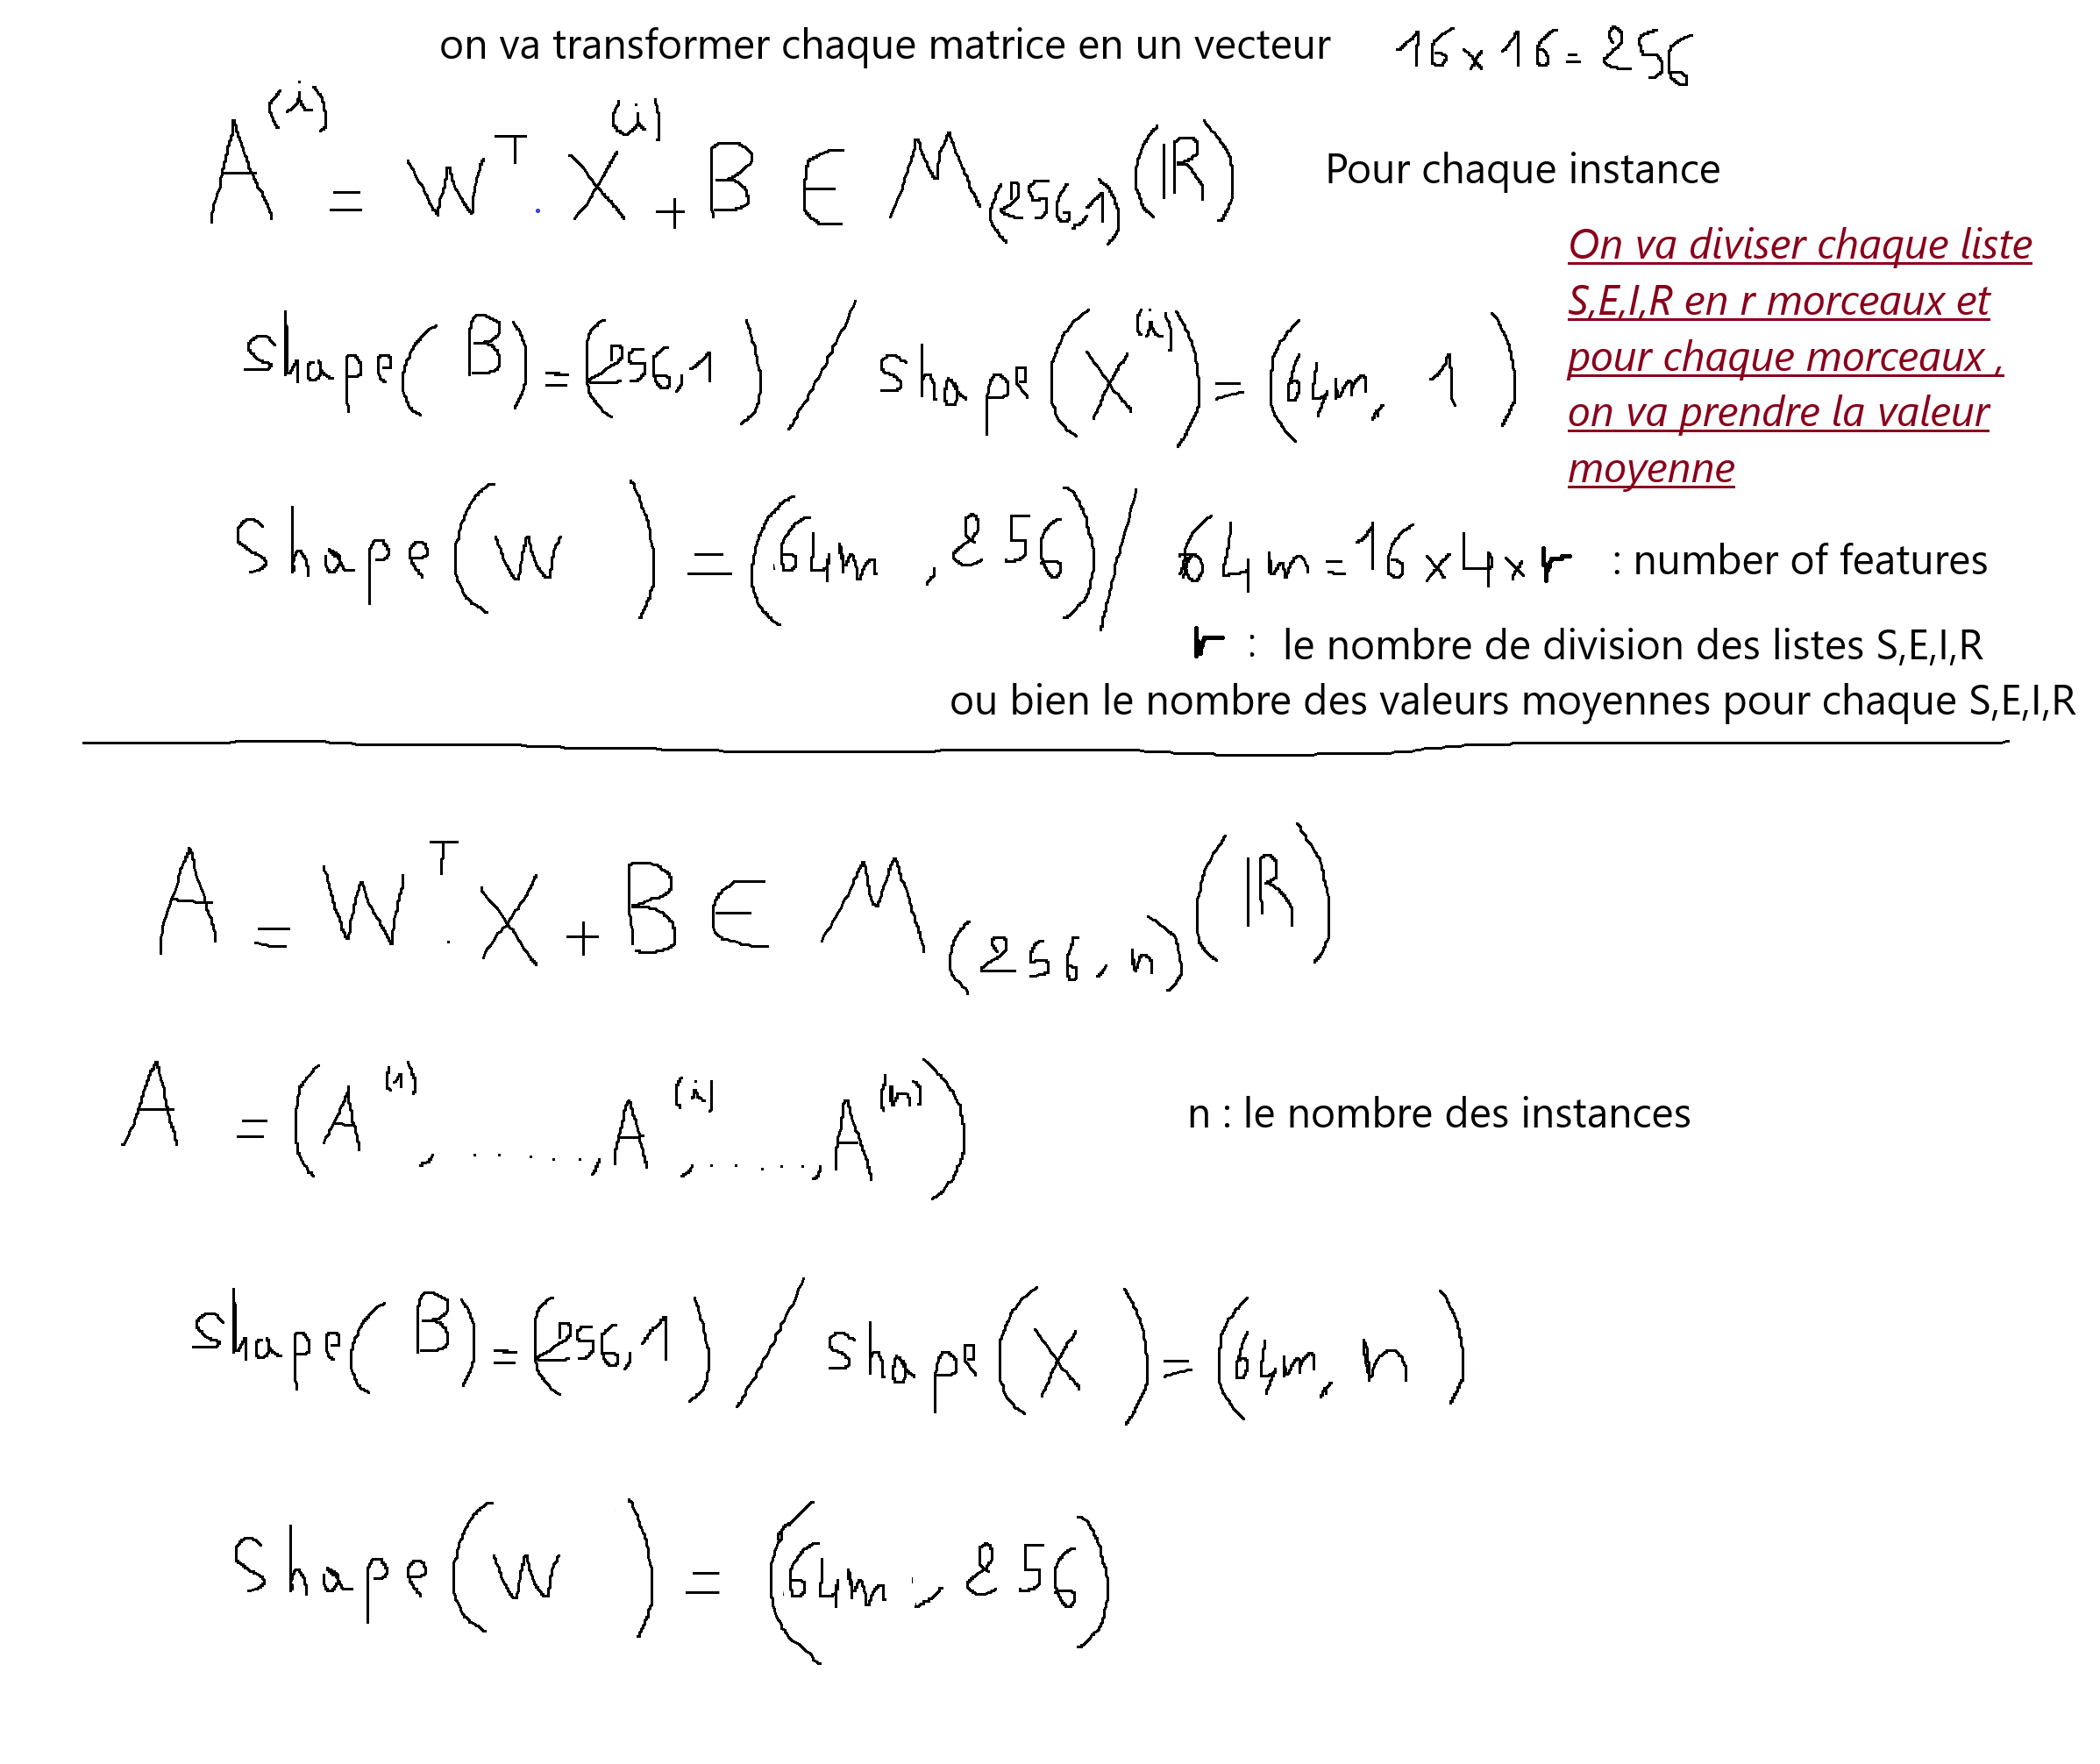 on va transformer chaque matrice en un vecteur 16 x 16 = 256
A^(i) = W^T . X^(i) + B ∈ M_(256,1) (ℝ) Pour chaque instance
On va diviser chaque liste
S,E,I,R en r morceaux et
pour chaque morceaux ,
on va prendre la valeur
moyenne
shape( B ) = (256,1) / shape(X^(i)) = (64m, 1)
shape(W ) = (64m , 256) / 64m = 16 x 4 x r : number of features
r : le nombre de division des listes S,E,I,R
ou bien le nombre des valeurs moyennes pour chaque S,E,I,R
A = W^T . X + B ∈ M_(256, n) (ℝ)
A = (A^(1) , ....., A^(i) , ....., A^(n)) n : le nombre des instances
shape( B ) = (256,1) / shape(X ) = (64m, n)
shape(W ) = (64m , 256)